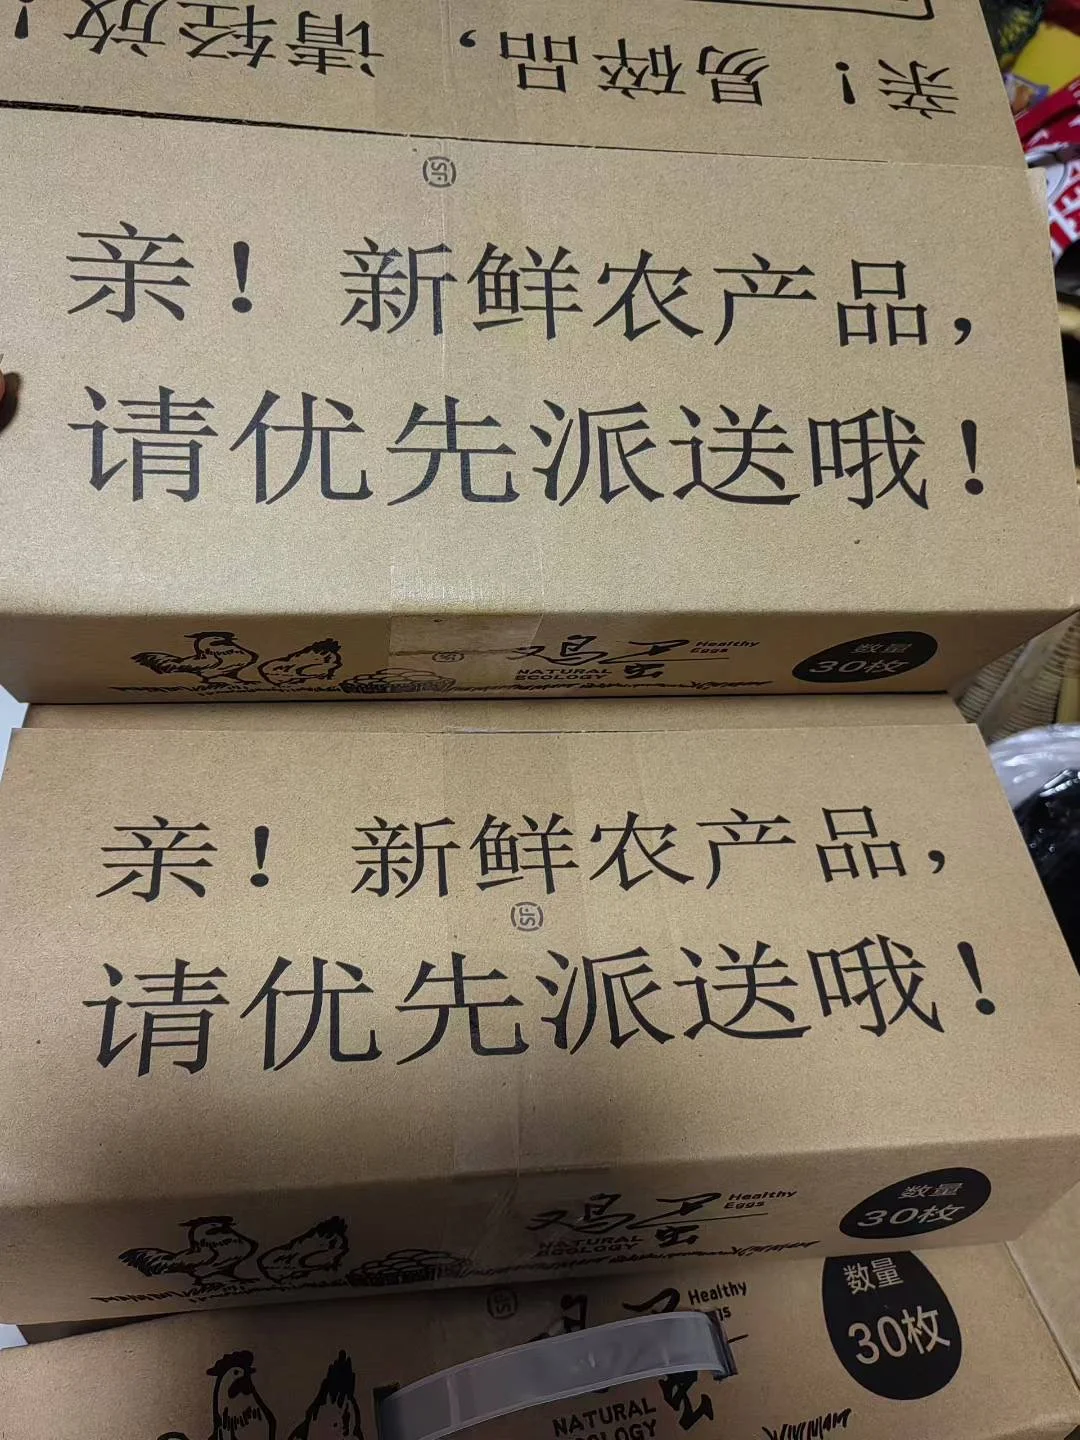 亲！易碎品，请轻放！
SF
亲！新鲜农产品，
请优先派送哦！
鸡蛋
Healthy
Eggs
NATURAL
ECOLOGY
数量
30枚
亲！新鲜农产品，
SF
请优先派送哦！
鸡蛋
Healthy
Eggs
NATURAL
ECOLOGY
数量
30枚
SF
Healthy
数量
30枚
NATURAL
ECOLOGY